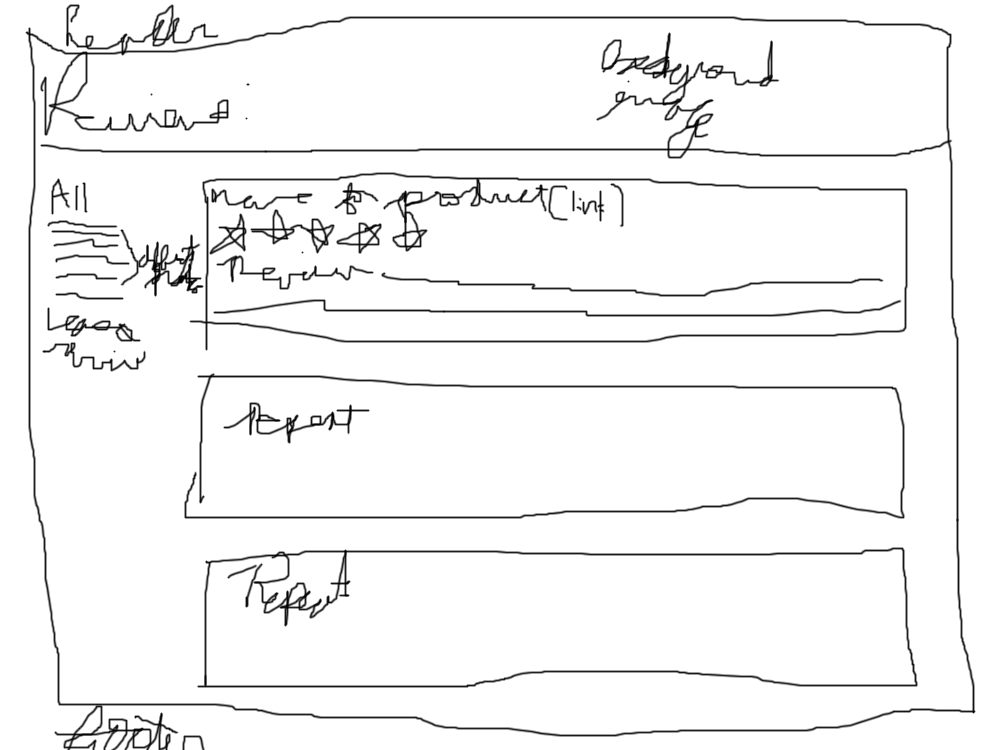 Header
Reviews
Background
image
All
Leave a
review
Name of product (link)
Review
Repeat
Repeat
Footer